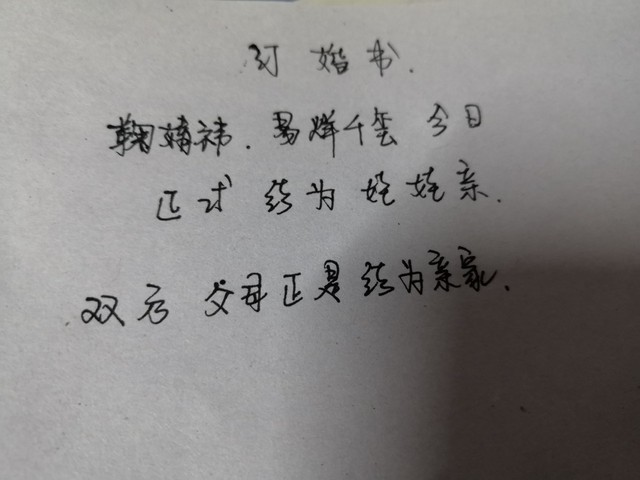 订婚书.
鞠婧祎.易烊千玺 今日
正式 结为 娃娃亲.
双方 父母正是结为亲家.